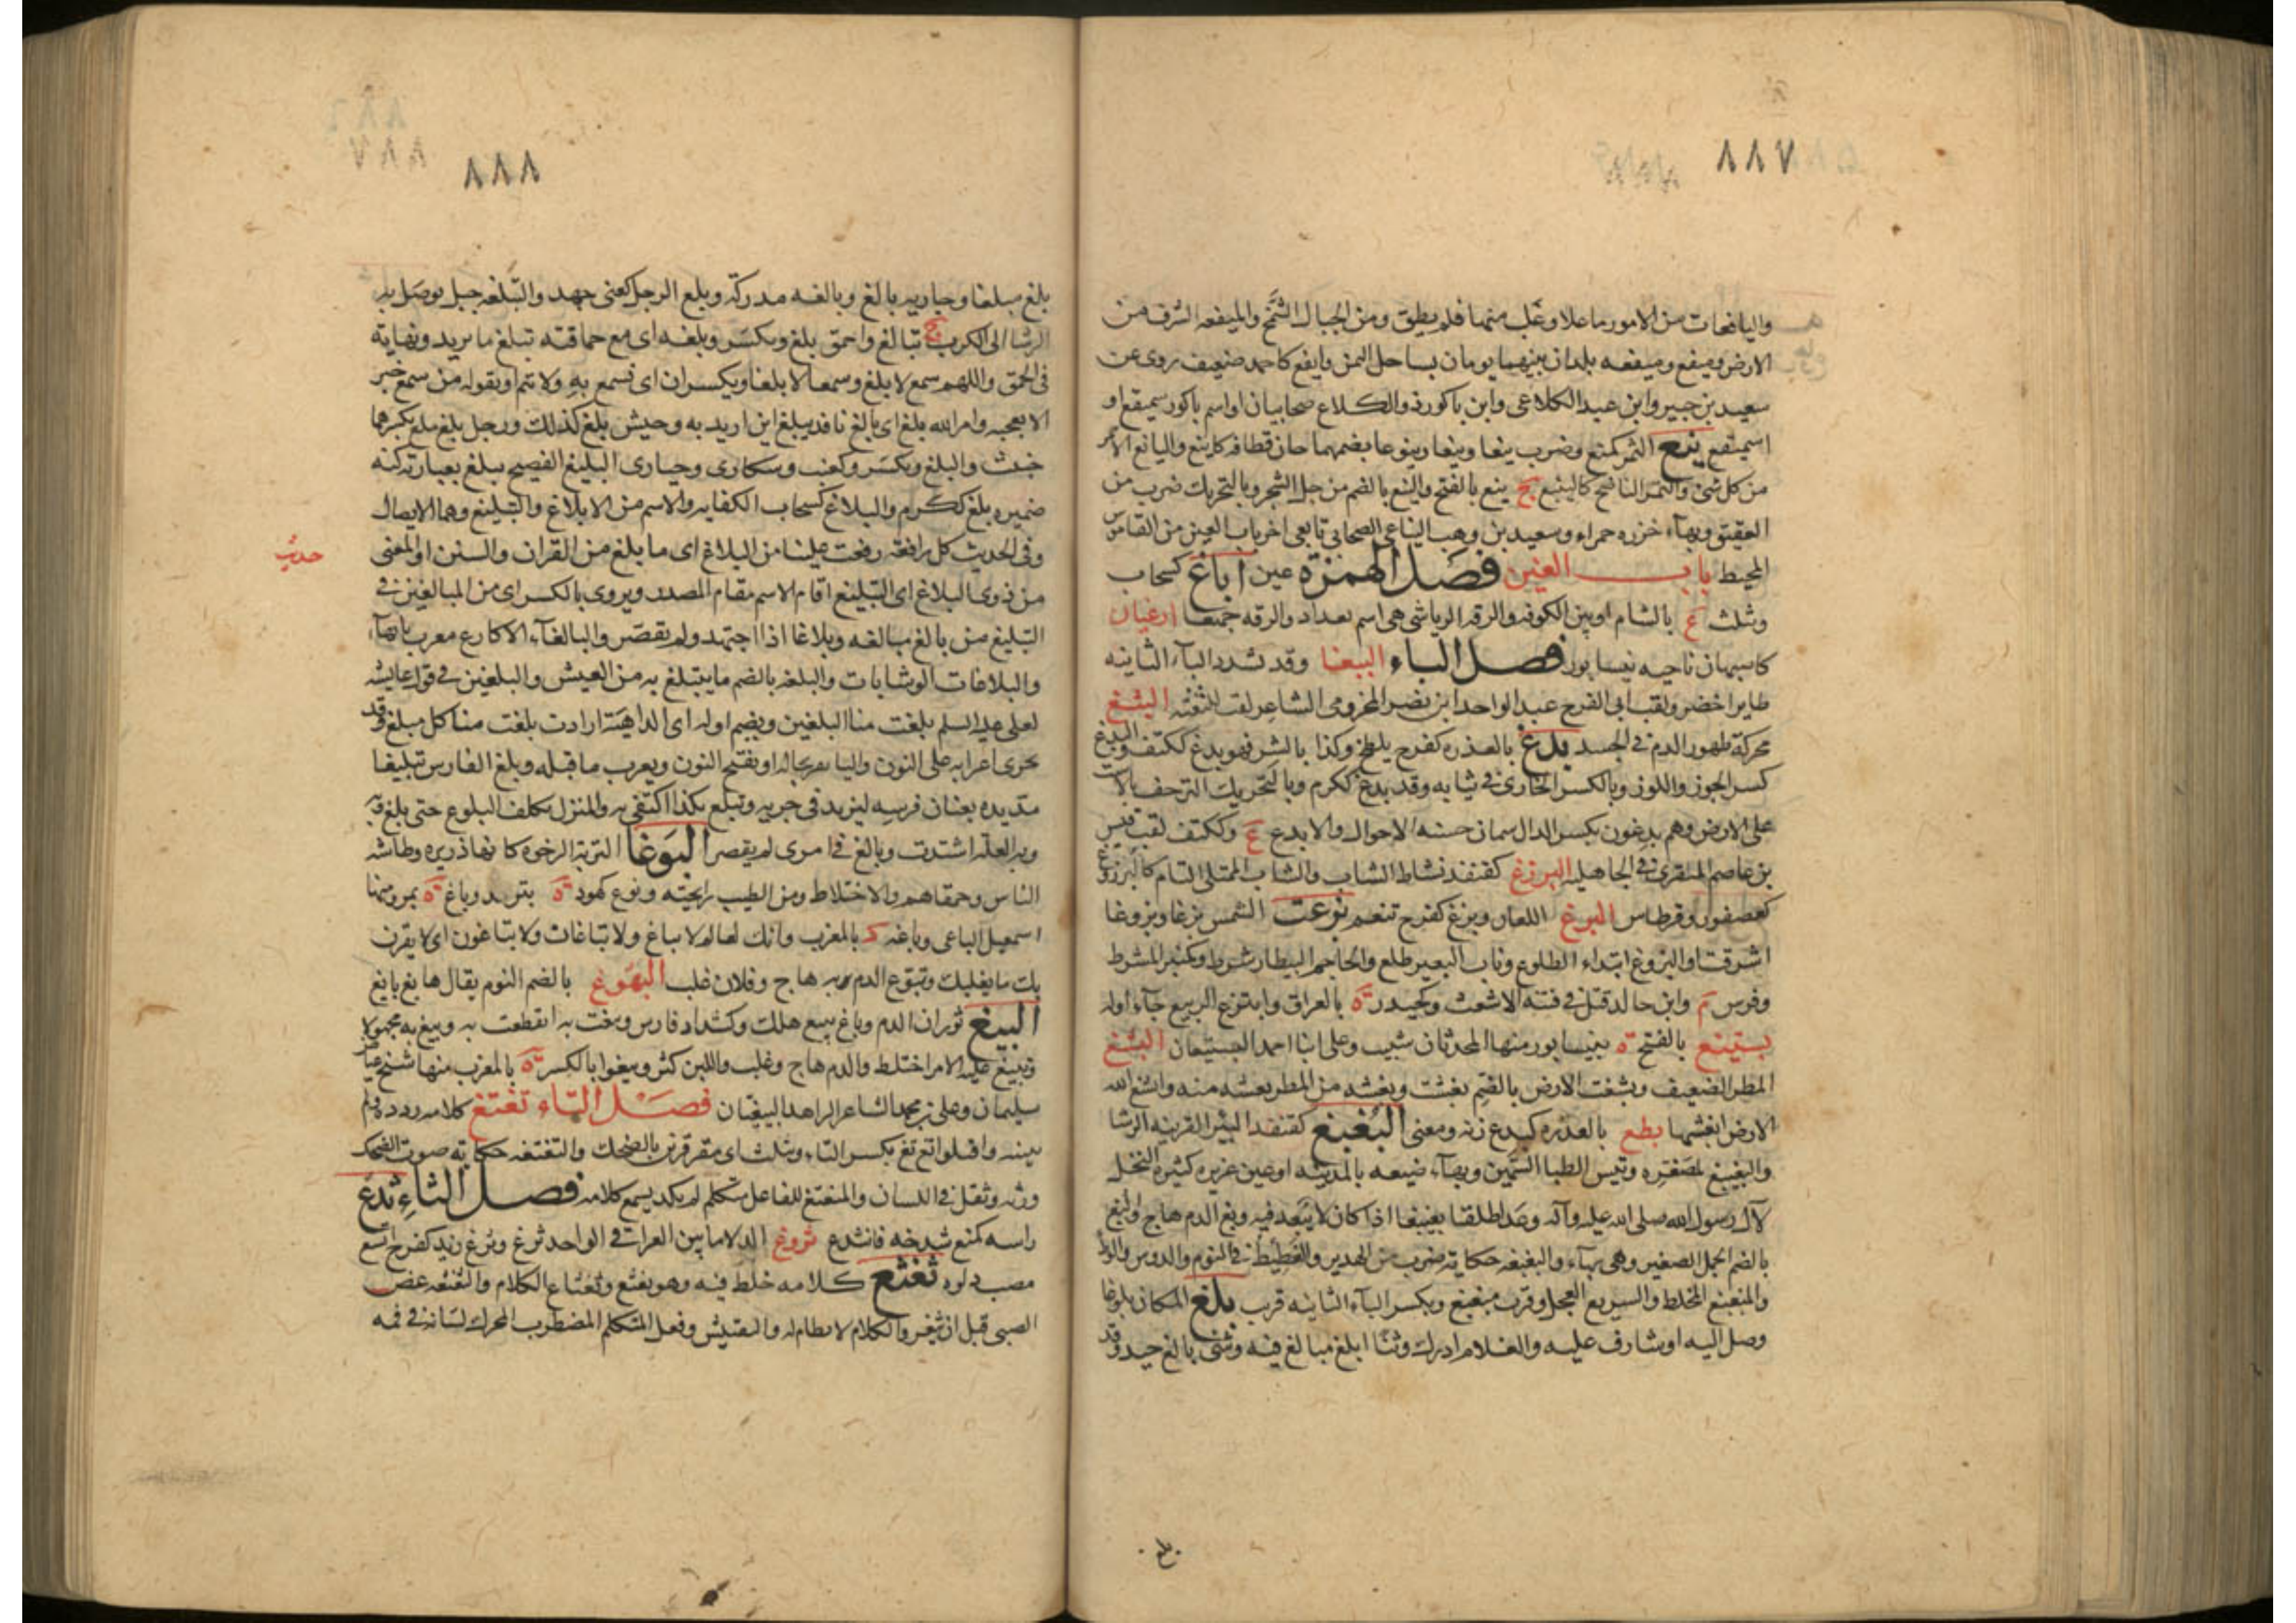 ٨٨٧
واليافعات من الامور ما علا وغلب منها فلم يطق ومن الجبال الشمخ والميفعه الشرف من
الارض وميفع وميفعه بلدان بينهما يومان بساحل اليمن وايفع كاحمد ضعيف روى عن
سعيد بن جبير وابن عبد الكلاعى وابن باكورذ والكلاع صحابيان او اسم باكور سميقع او
اسميتفع ينع الثمر كمنع وضرب ينعا وينعا وينوعا بضمهما حان قطافه كاينع واليانع الاحمر
من كل شئ والثمر الناضج كالينيع ج ينع بالفتح والينع بالضم من جل الشجر وبالتحريك ضرب من
العقيق وبهاء خرزه حمراء وسعيد بن وهب اليناعى الصحابى تابعى اخر باب العين من القاموس
المحيط باب الغين فصل الهمزة عين اباغ كسحاب
وثلث ع بالشام او بين الكوفه والرقه الرياشى هى اسم بغداد والرقه جميعا ارغيان
كاسبهان ناحيه نيسابور فصل الباء الببغا وقد تشدد الباء الثانيه
طاير اخضر ولقب ابى الفرج عبد الواحد ابن نصر المخزومى الشاعر لقب للثغته البثغ
محركة ظهور الدم فى الجسد بدغ بالعذره كفرح يلطخ وكذا بالشر فهو بدغ ككتف والبدغ
كسر الجوز واللوز وبالكسر الخارى فى ثيابه وقد بدغ ككرم وبالتحريك التزحف بالاست
على الارض وهم بدغون بكسر الدال سمان حسنه الاحوال والابدع ع وككتف لقب قيس
بن عاصم المنقرى فى الجاهليه البرزغ كقنفذ نشاط الشباب والشاب الممتلى التام كالبرزوغ
كعصفور وقرطاس البرغ اللعاب وبرغ كفرح تنعم بزغت الشمس بزغا وبزوغا
اشرقت او البزوغ ابتداء الطلوع وناب البعير طلع والحاجم البيطار شرط وكمنبر المشرط
وفرس م وابن خالد قتل فى فتنه الاشعث وكحيدر ة بالعراق وابتزغ الربيع جآء اوله
بستيغ بالفتح ة بنيسابور منها المحدثان شبيب وعلى ابنا احمد البستيغيان البشغ
المطر الضعيف وبشغت الارض بالضم بغشت وبغشه من المطر بعشه منه وابشغ الله
الارض ابغشها بطغ بالعذره كبدغ زنه ومعنى البغبغ كقنفد البئر القريبه الرشا
والبغيبغ لمصغره وتيس الظبا السمين وبهآء ضيعه بالمدينه او عين غزيره كثيره النخل
لآل رسول الله صلى الله عليه وآله وعدا طلقا بغيبغا اذا كان لا يبعد فيه وبغ الدم هاج والبغ
بالضم الجمل الصغير وهى بهاء والبغبغه حكايه ضرب من الهدير والغطيط فى النوم والدوس والوطء
والمبغبغ المخلط والسريع العجل وقرب مبغبغ وبكسر البآء الثانيه قرب بلغ المكان بلوغا
وصل اليه او شارف عليه والغلام ادرك وثنا ابلغ مبالغ فيه وشئ بالغ جيد وقد
بلغ
٨٨٨
بلغ مبلغا وجاريه بالغ وبالغه مدركة وبلغ الرجل كعنى جهد والتبلغه حبل يوصل به
الرشا الى الكرب ج تبالغ واحمق بلغ ويكسر وبلغه اى مع حماقته تبلغ ما يريد ونهايه
فى الحمق واللهم سمع لا بلغ وسمعا لا بلغا ويكسران اى نسمع به ولا تتم او يقوله من سمع خبر
لا يعجبه وامر الله بلغ اى بالغ نافذ يبلغ اين اريد به وجيش بلغ كذلك ورجل بلغ ملغ بكسرهما
خبيث والبلغ ويكسر وكعنب وسكارى وحبارى البليغ الفصيح يبلغ بعبارته كنه
ضميره بلغ ككرم والبلاغ كسحاب الكفايه والاسم من الابلاغ والتبليغ وهما الايصال
حديث
وفى الحديث كل رافعة رفعت علينا من البلاغ اى ما بلغ من القران والسنن او المعنى
من ذوى البلاغ اى التبليغ اقام الاسم مقام المصدر ويروى بالكسر اى من المبالغين فى
التبليغ من بالغ مبالغه وبلاغا اذا اجتهد ولم يقصر والبالغآء الاكارع معرب پايهآء
والبلاغات الوشايات والبلغه بالضم ما يتبلغ به من العيش والبلغين فى قول عايشه
لعلى عليه السلم بلغت منا البلغين ويضم اوله اى الداهية ارادت بلغت منا كل مبلغ وقد
يجرى اعرابه على النون واليا بحاله او يفتح النون ويعرب ما قبله وبلغ الفارس تبليغا
مد يده بعنان فرسه ليزيد فى جريه وتبلغ بكذا اكتفى به والمنزل تكلف البلوغ حتى بلغ به
وبه العلة اشتدت وبالغ فى امرى لم يقصر البوغا التربة الرخوه كانها ذريره وطاشه
الناس وحمقاهم والاختلاط ومن الطيب رايحته ونوع كهود ة بترمد وباغ ة بمرو منها
اسمعيل الباغى وباغه د بالمغرب وانك لعالم لا تباغ ولا تباغان ولا تباغون اى لا يقرن
بك ما يغلبك وتبوغ الدم به هاج وفلان غلب البهوغ بالضم النوم يقال هابغ بايغ
البيغ ثوران الدم وباغ يبيغ هلك وكشداد فارس وبيغت به انقطعت به وبيغ به مجهولا
وتبيغ عليه الامر اختلط والدم هاج وغلب واللبن كثر وبيغوا بالكسر ة بالمغرب منها شيخ عياض
سليمان وعلى بن محمد الشاعر الزاهد البيغيان فصل التاء تغتغ كلامه ردده ولم
يبينه واقبلوا تغ تغ بكسر التاء وثلث اى مقرقرين بالضحك والتغتغه حكاية صوت الضحك
ورته وثقل فى اللسان والمتغتغ للفاعل متكلم لم يكد يسمع كلامه فصل الثاء ثدغ
راسه كمنع شدخه فانثدع ثروغ الدلا ما بين العراقى الواحد ثرغ وثرغ زيد كفرح اتسع
مصب دلوه ثغثغ كلامه خلط فيه وهو ثغثغ وثغثاغ الكلام والثغثغه عض
الصبى قبل ان يثغر والكلام لا نظام له والتفتيش وفعل المتكلم المضطرب المحرك لسانه فى فمه